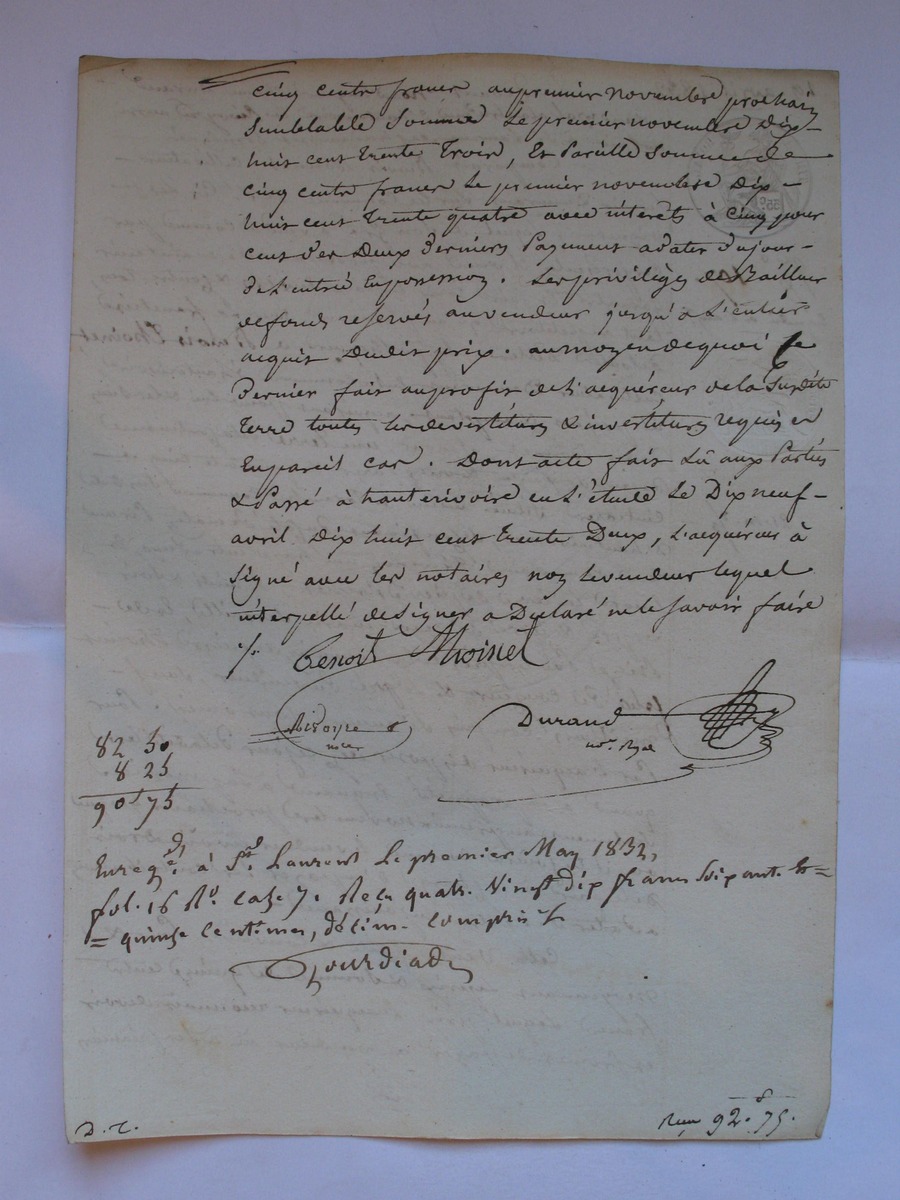 cinq cents francs au premier novembre prochain
Semblable Somme Le premier novembre Dix-
huit cent trente Trois, Et Pareille Somme de
cinq cents francs Le premier novembre dix-
huit cent trente quatre avec interets à Cinq pour
cent des Deux derniers Payement a dater du jour
de L'entrée En possession. Les privileges de Bailleur
de fonds reservés au vendeur jusqu'a L'entier
acquit Dudit prix. au moyen de quoi Ce
Dernier fait au profit de L'acquéreur de la Susdite
Terre toutes les devestitures & investitures requises
En pareil cas. Dont acte fait Lû aux Parties
& Passé à hauterivoire en L'étude Le Dix neuf
avril Dix huit cent trente Deux, L'acquéreur à
Signé avec les notaires non le vendeur lequel
interpellé de Signer a Déclaré ne le Savoir faire
./.
Benoit Thoinet
Durand
nre. Royal
82 50
8 25
90 75
Enreg.é à St. Laurent Le premier May 1832,
fol. 16 Ro. case 7. Reçu quatre Vingt dix francs Soixante
= quinze Centimes, décime Compris
D. C.
Reçu 92. 75.